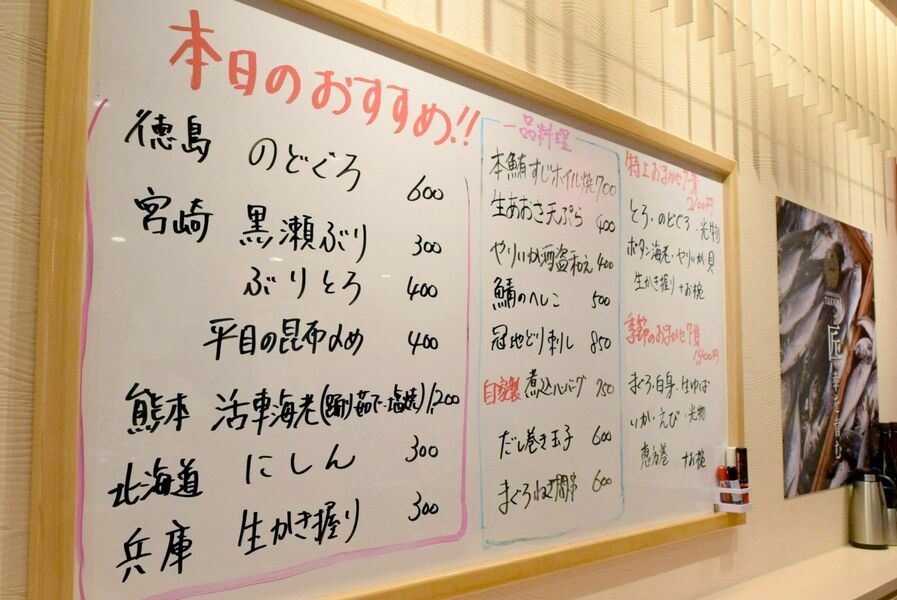 本日のおすすめ!!
徳島 のどぐろ 600
宮崎 黒瀬ぶり 300
ぶりとろ 400
平目の昆布〆め 400
熊本 活車海老(踊り・茹で・塩焼) 1,200
北海道 にしん 300
兵庫 生かき握り 300
一品料理
本鮪すじホイル焼 700
生あおさ天ぷら 400
やりいか酒盗和え 400
鯖のへしこ 500
冠地どり刺し 850
自家製 煮込ハンバーグ 750
だし巻き玉子 600
まぐろねぎ間串 600
特上おまかせ
2,100円
とろ・のどぐろ・光物
ボタン海老・やりいか・貝
生かき握り +お椀
季節のおまかせ7貫
1,400円
まぐろ・白身・生ゆば
いか・えび・光物
恵方巻 +お椀
匠